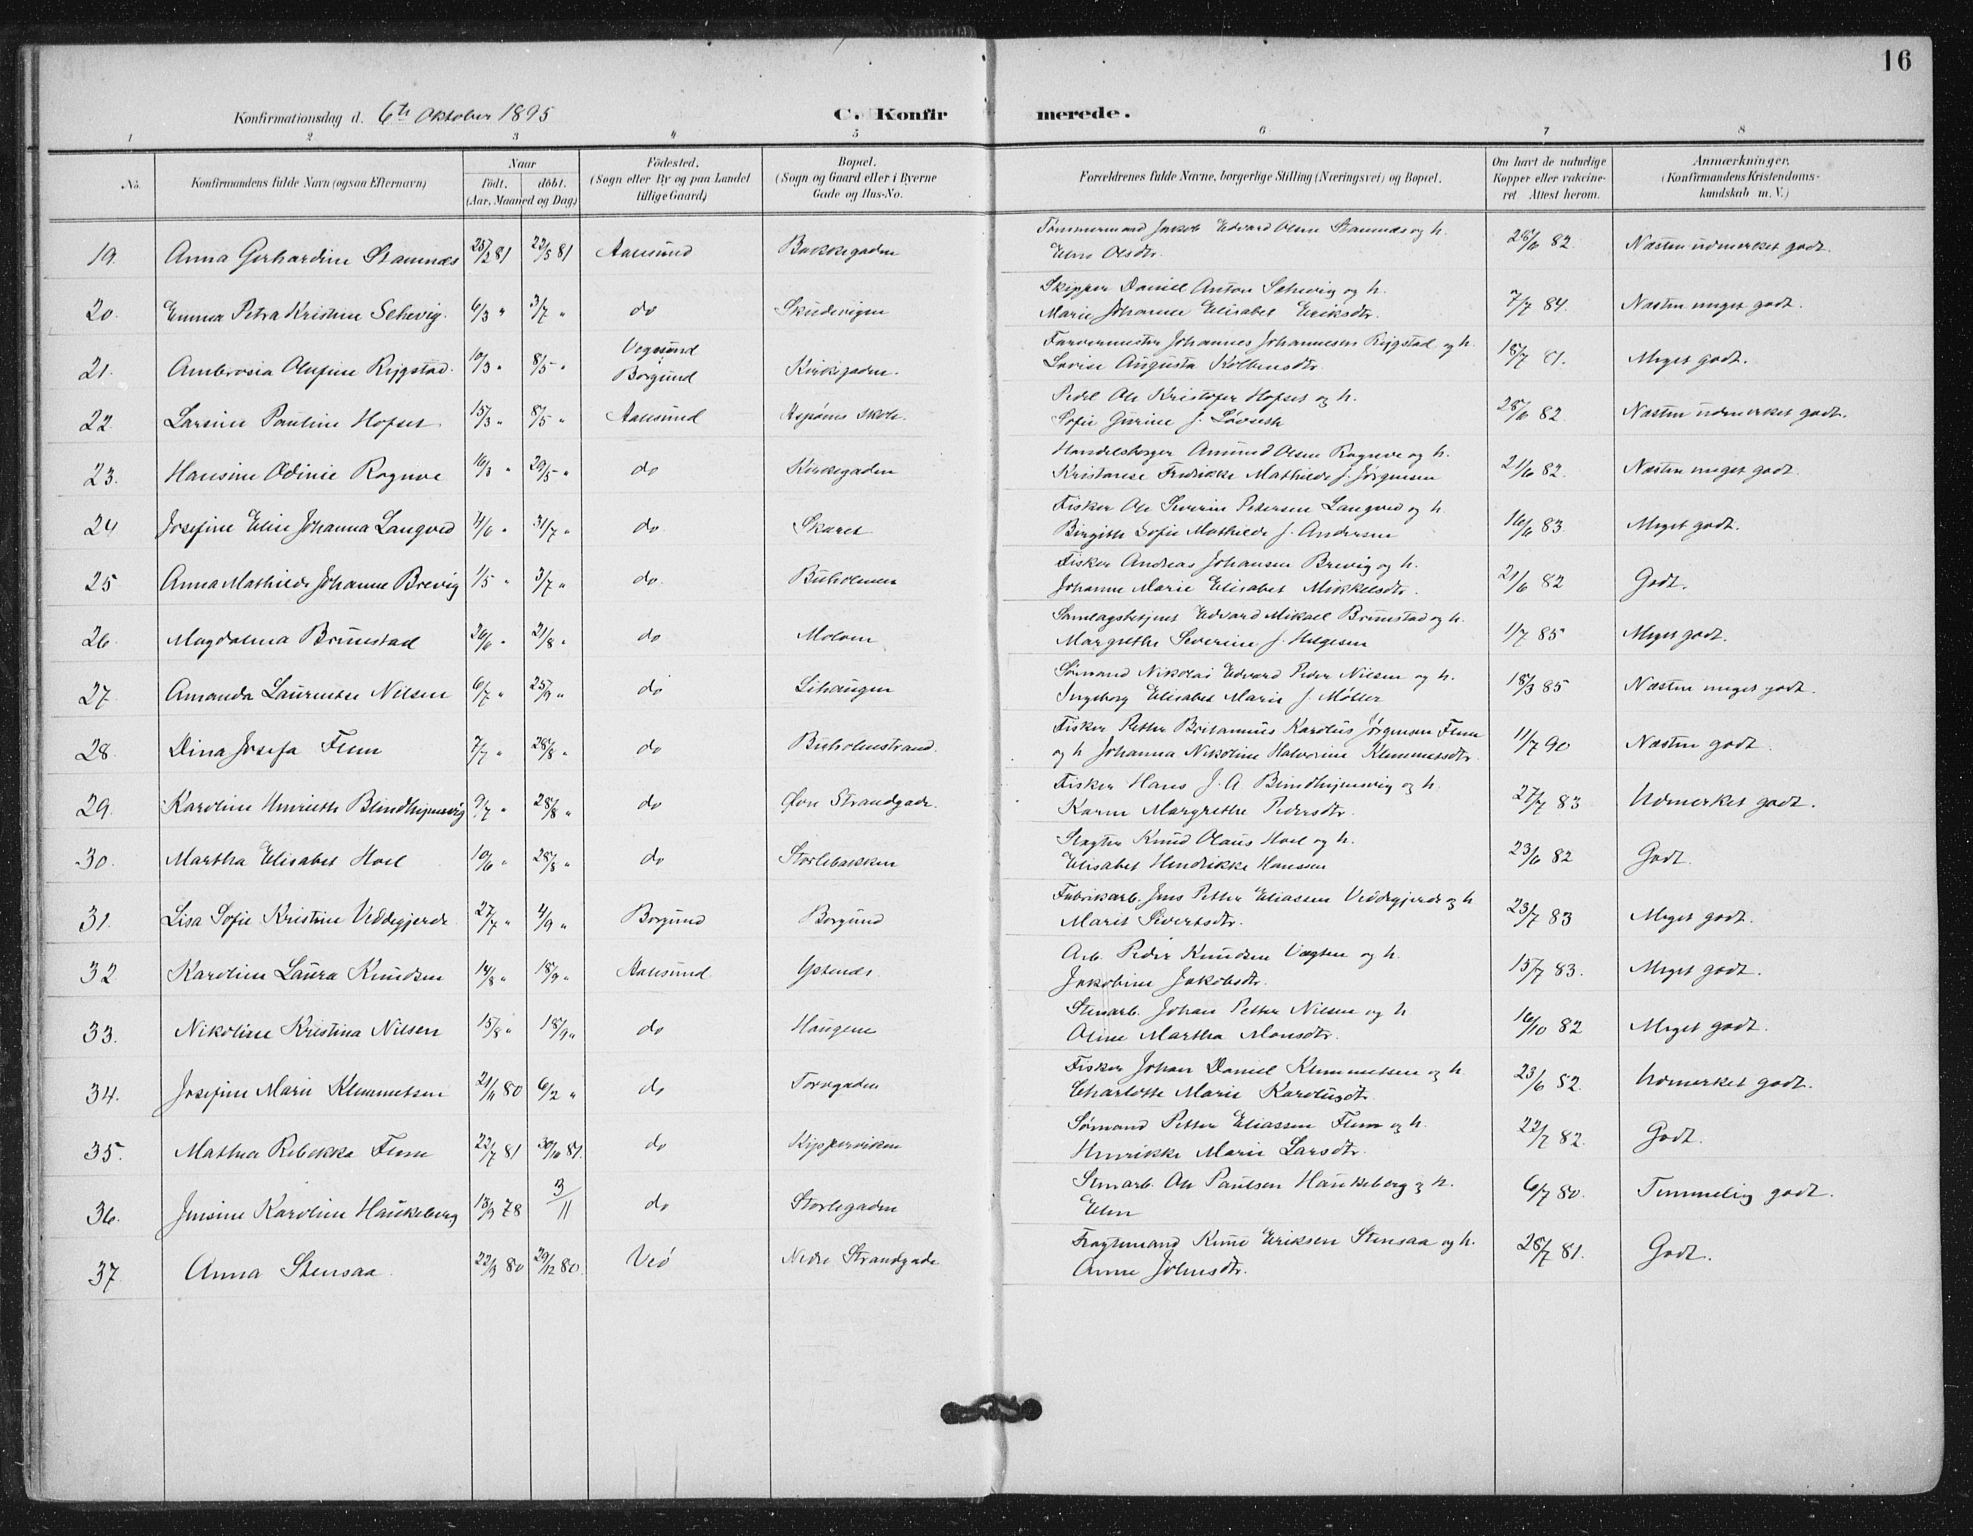 16
Konfirmationsdag d. 6te Oktober 1895 C. Konfirmerede.
1 2 3 4 5 6 7 8
No. Konfirmandens fulde Navn (ogsaa Efternavn) Naar Födt. döbt. (Aar, Maaned og Dag) Födested. (Sogn eller By og paa Landet tillige Gaard) Bopæl. (Sogn og Gaard eller i Byerne Gade og Hus-No. Forældrenes fulde Navne, borgerlige Stilling (Næringsvei) og Bopæl. Om havt de naturlige Kopper eller vakcineret Attest herom. Anmærkninger. (Konfirmandens Kristendomskundskab m. V.)
19. Anna Gerhardine Stamnæs 22/5 81 Aalesund Bakkegaden Tømmermand Jakob Edvard Olsen Stamnæs og h. Elen Olsdtr. 28/6 82. Næsten udmerket godt.
20. Emma Petra Kristine Sehevig. 6/3 " 3/7 " do Skudevigen Skipper Daniel Anton Sehevig og h. Marie Johanne Elisabet Eriksdtr. 7/7 84. Næsten meget godt.
21. Ambrosia Olufine Rijgstad. 10/3 " 8/5 " Vegsund Borgund Kirkegaden. Farvermester Johannes Johannesen Rijgstad og h. Lovise Augusta Kolbensdtr. 18/7 81. Meget godt.
22. Larsine Pauline Hofset 15/3 " 8/5 " Aalesund Aspønes skole. Pedel Ole Kristofer Hofset og h. Sofie Gurine J. Løvseth 28/6 82. Næsten udmerket godt.
23. Hansine Odinie Ragnve 16/3 " 29/5 " do Kirkegaden Handelsborger Amund Olsen Ragnve og h. Kristanse Fredrikke Mathilde J. Jørgensen 21/6 82. Næsten meget godt.
24 Josefine Elise Johanna Langved 4/6 " 31/7 " do Skaret Fisker Ole Severin Petersen Langved og h. Birgith Sofie Mathilde J. Andersen 16/6 83. Meget godt.
25 Anna Mathilde Johanne Brevig 1/5 " 3/7 " do Buholmen Fisker Andreas Johansen Brevig og h. Johanne Marie Elisabet Mikkelsdtr. 21/6 82 Godt.
26. Magdalena Brunstad 26/6 " 21/8 " do Moloen Samlagsbetjent Edvard Mikael Brunstad og h. Margrethe Severine J. Helgesen 1/7 85 Meget godt.
27. Amanda Laurentse Nilsen 6/7 " 25/9 " do Lihaugen Sømand Nikolai Edvard Peder Nilsen og h. Ingeborg Elisabet Marie J. Møller 18/3 85. Næsten meget godt.
28. Dina Josefa Flem 7/7 " 28/8 " do Buholmstrand. Fisker Petter Britannus Karolus Jørgensen Flem og h Johanna Nikoline Halvorine Klemmetsdtr. 11/7 90 Næsten godt.
29. Karoline Henriette Blindheimsvig 9/7 " 28/8 " do Øvre Strandgade. Fisker Hans J. A Blindheimsvig og h. Karen Margrethe Pedersdtr. 27/7 83 Udmerket godt.
30. Martha Elisabet Hoel 10/6 " 28/8 " do Storlebakken Slagter Knud Olaus Hoel og h. Elisabet Hendrikke Hanssen 23/6 82 Godt.
31. Lisa Sofie Kristine Veddegjerde 27/7 " 4/9 " Borgund Borgund Fabrikarb. Jens Petter Eliassen Veddegjerde og h Marit Sivertsdtr. 23/7 83 Meget godt.
32. Karoline Laura Knudsen 14/8 " 18/9 " Aalesund Ystenæs. Arb. Peder Knudsen Vægten og h. Jakobine Jakobsdtr. 15/7 83. Meget godt.
33. Nikoline Kristina Nilsen 15/8 " 18/9 " do Haugene Stenarb. Johan Petter Nilsen og h Oline Martha Monsdtr. 16/10 82 Meget godt.
34. Josefine Marie Klemmetsen 21/11 80 6/2 " do Torvgaden Fisker Johan Daniel Klemmetsen og h. Charlotte Marie Karolusdtr. 23/6 82. Udmerket godt.
35. Mathea Rebekka Flem 22/7 81 30/10 81. do Kippervikna Sømand Petter Eliassen Flem og h. Henrikke Marie Larsdtr. 22/7 82. Godt.
36. Jensine Karoline Haukeberg 18/9 78 3/11 do Storlegaden Stenarb. Ole Paulsen Haukeberg og h. Elen 6/7 80. Temmelig godt.
37 Anna Stensaa 22/9 80 29/12 80. Veø Nedre Strandgade Fragtemand Knud Eriksen Stensaa og h. Anne Johnsdtr. 28/7 81. Godt.